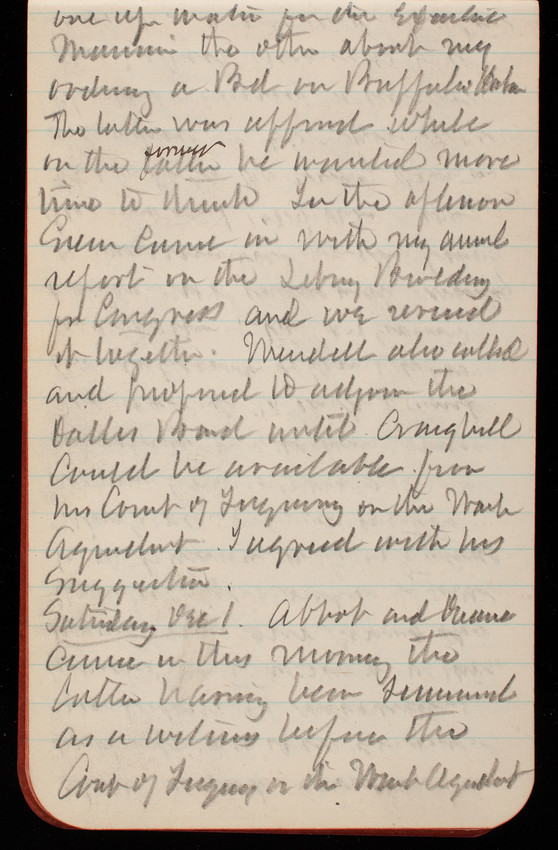 one up matter for the
Mansion the other about my
ordering a Bd on Buffalo Harbor
The latter was approved while
on the latter former he wanted more
time to think In the afternoon
Green came in with my annual
report on the Library Building
for Congress and we revised
it together. Mendell also called
and proposed to adjourn the
Dalles Board until Craighill
could be available from
his Court of Inquiry on the Wash
Aqueduct. I agreed with his
suggestion.
Saturday Dec 1. Abbot and
came in this morning the
latter having been summoned
as a witness before the
Court of Inquiry on the Wash Aqueduct